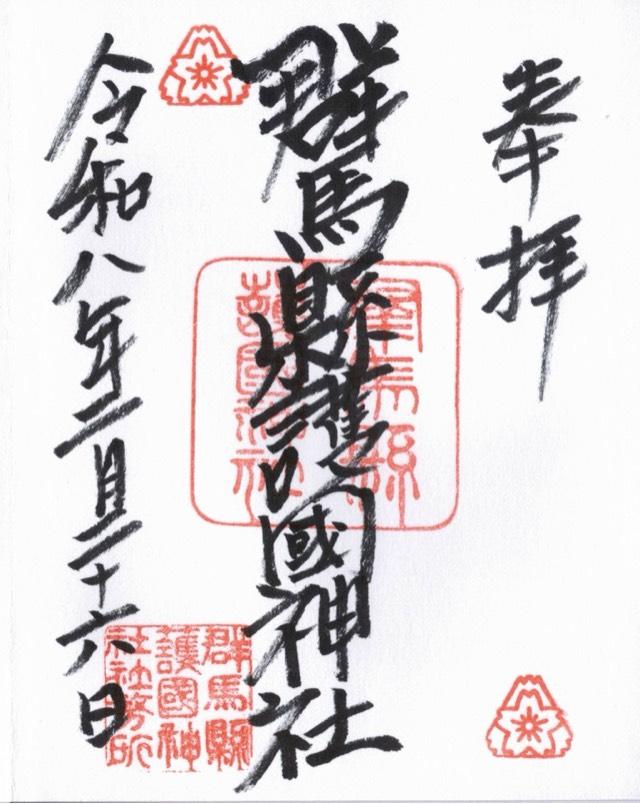 奉拝
群馬縣護國神社
群馬縣護國神社
令和八年二月二十六日
群馬縣護國神社社務所